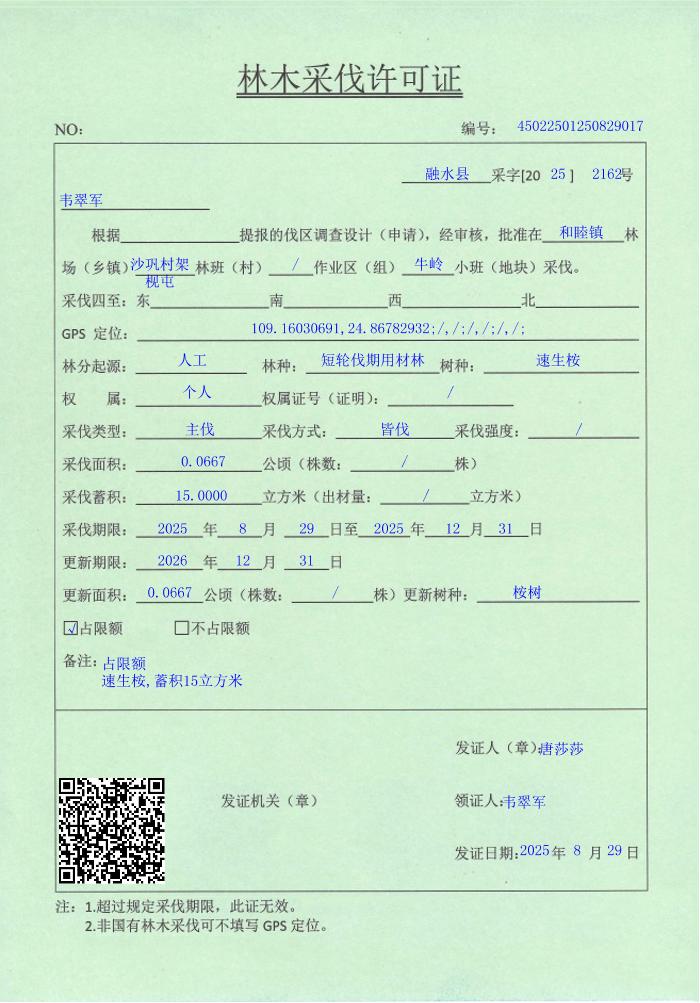 林木采伐许可证
NO： 编号： 45022501250829017
融水县 采字[20 25 ] 2162号
韦翠军
根据 提报的伐区调查设计（申请），经审核，批准在 和睦镇 林
场（乡镇）沙巩村架枧屯 林班（村） / 作业区（组） 牛岭 小班（地块）采伐。
采伐四至：东 南 西 北
GPS 定位： 109.16030691,24.86782932;/,/;/,/;/,/;
林分起源： 人工 林种： 短轮伐期用材林 树种： 速生桉
权 属： 个人 权属证号（证明）： /
采伐类型： 主伐 采伐方式： 皆伐 采伐强度： /
采伐面积： 0.0667 公顷（株数： / 株）
采伐蓄积： 15.0000 立方米（出材量： / 立方米）
采伐期限： 2025 年 8 月 29 日至 2025 年 12 月 31 日
更新期限： 2026 年 12 月 31 日
更新面积： 0.0667 公顷（株数： / 株）更新树种： 桉树
☑占限额 □不占限额
备注： 占限额
速生桉,蓄积15立方米
发证人（章）：唐莎莎
发证机关（章） 领证人：韦翠军
发证日期：2025年 8 月 29 日
注： 1.超过规定采伐期限，此证无效。
2.非国有林木采伐可不填写 GPS 定位。